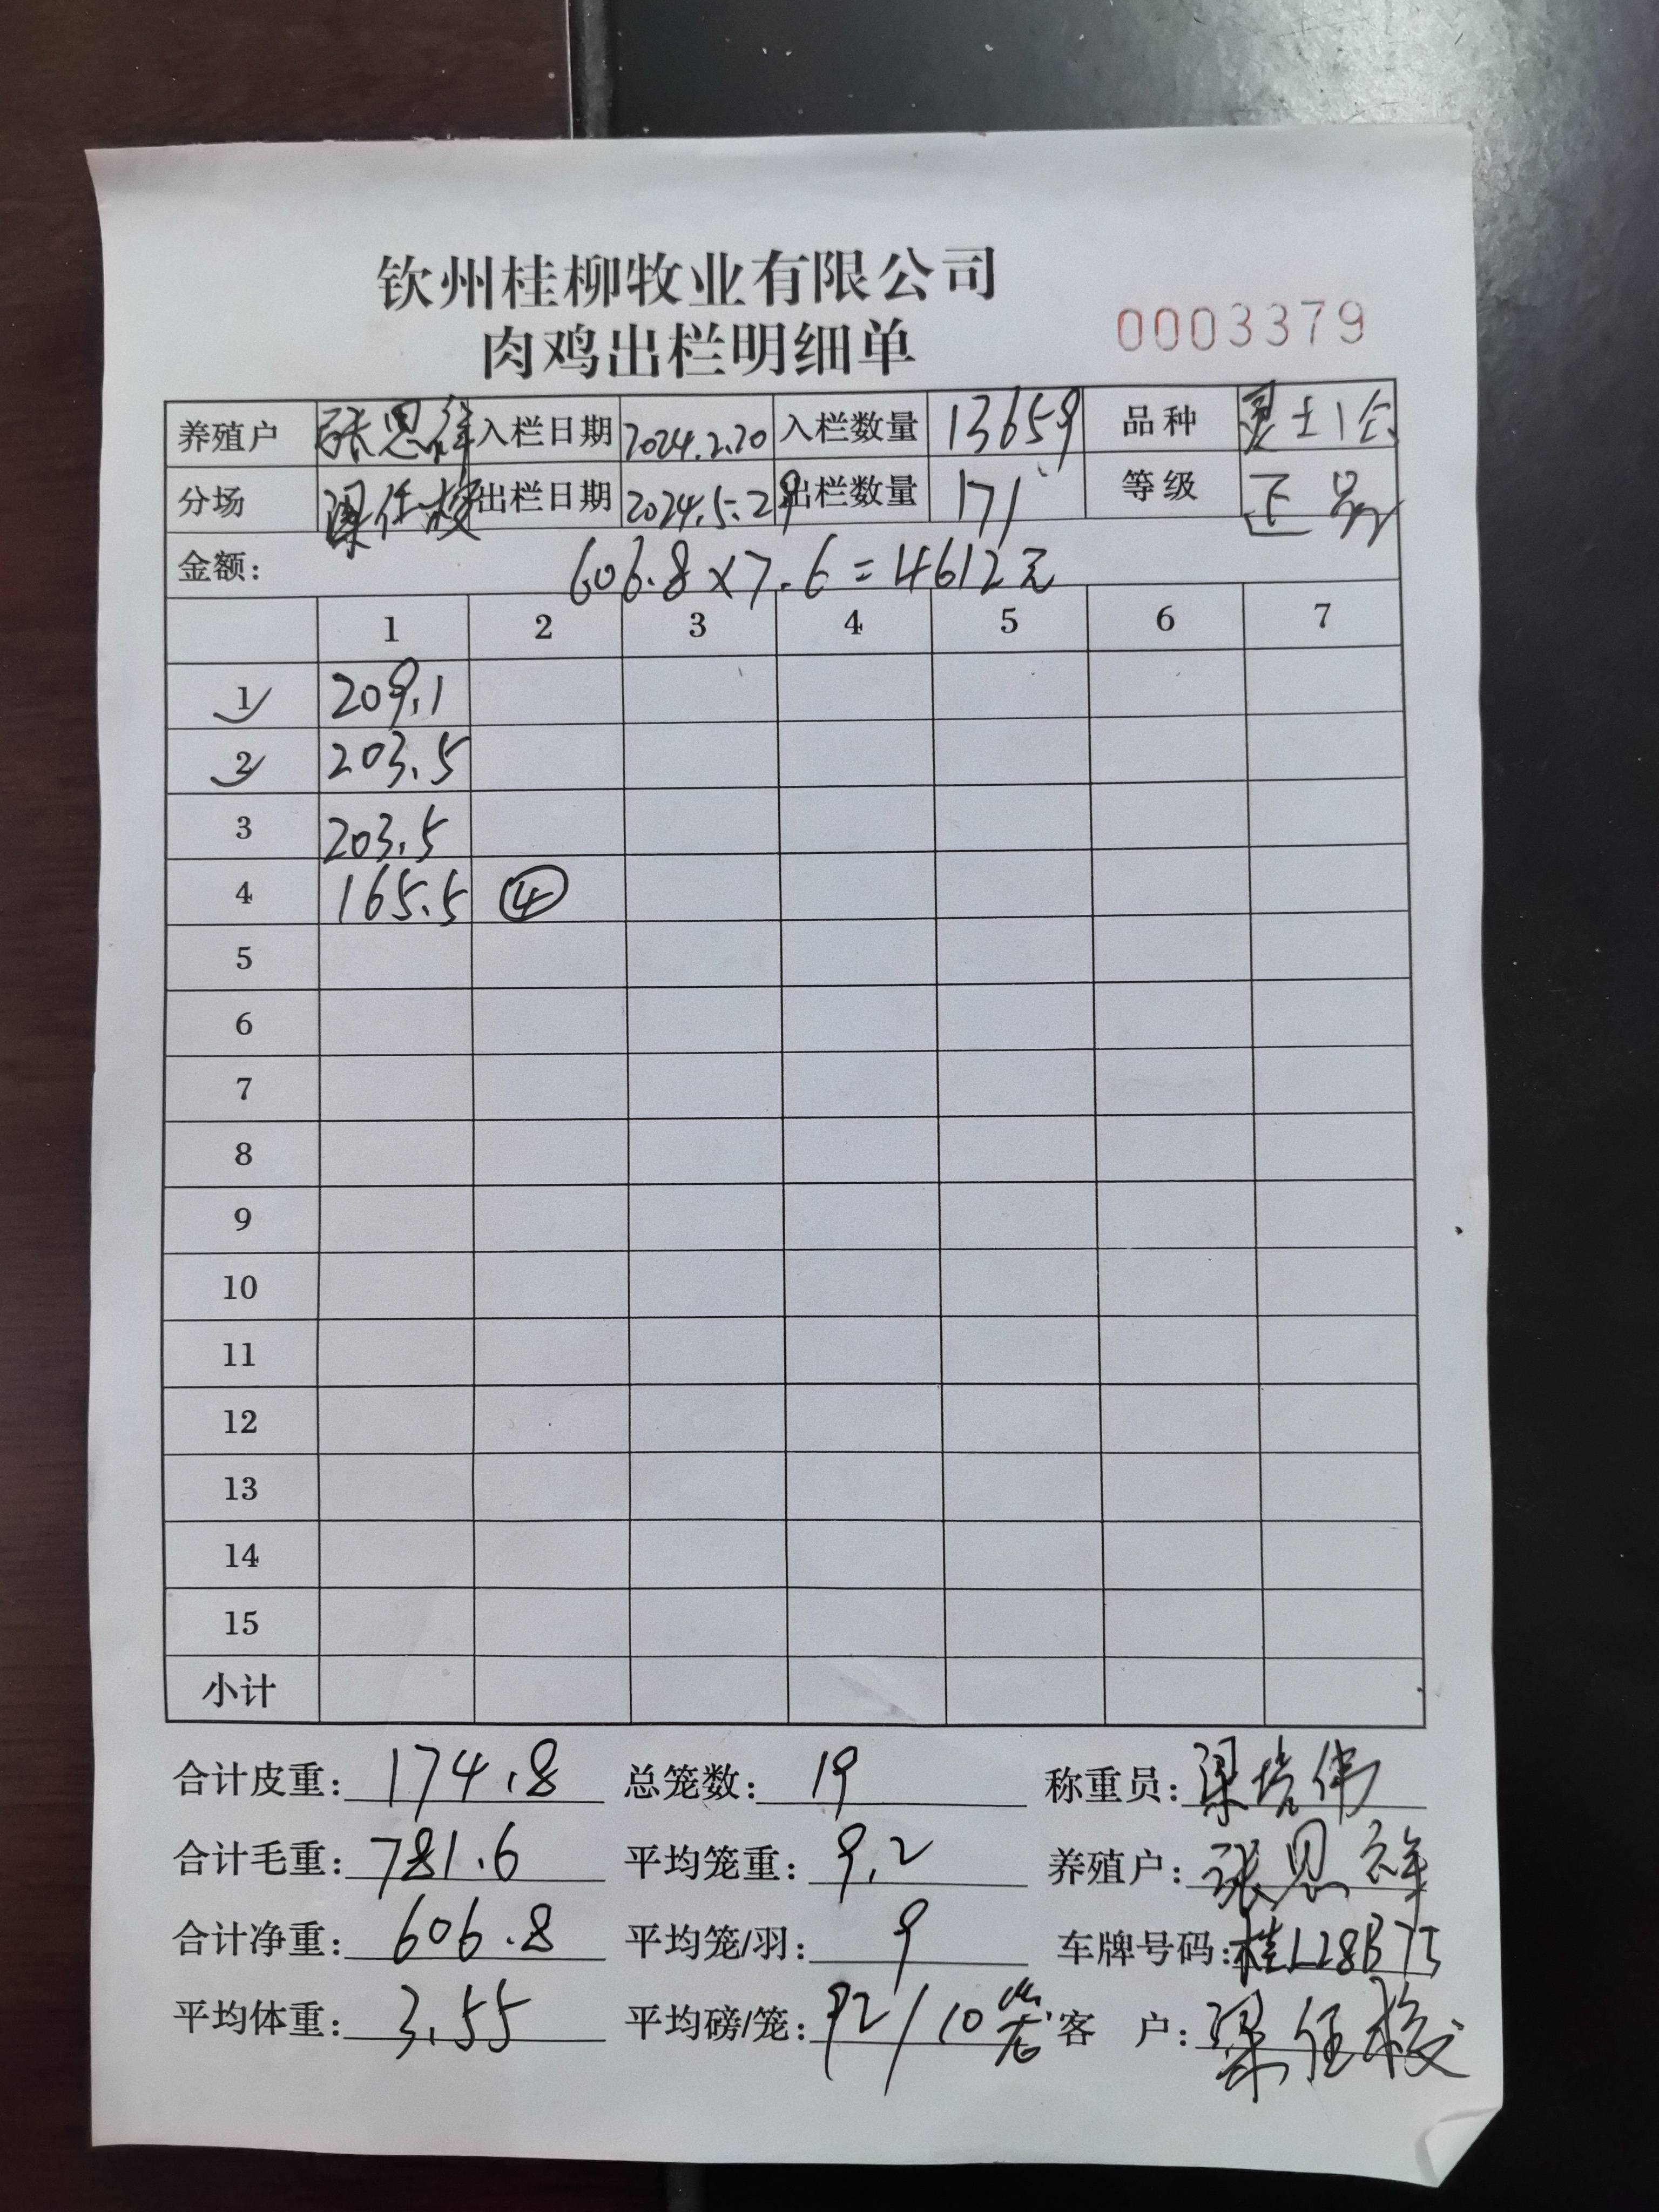 钦州桂柳牧业有限公司
肉鸡出栏明细单
0003379
养殖户 张恩祥 入栏日期 2024.2.20 入栏数量 13659 品种 灵土1公
分场 梁任授 出栏日期 2024.5.29 出栏数量 171 等级 正品
金额: 606.8×7.6=4612元
1 2 3 4 5 6 7
1 209.1
2 203.5
3 203.5
4 165.5 ④
5
6
7
8
9
10
11
12
13
14
15
小计
合计皮重: 174.8 总笼数: 19 称重员: 梁培伟
合计毛重: 781.6 平均笼重: 9.2 养殖户: 张恩祥
合计净重: 606.8 平均笼/羽: 9 车牌号码: 桂L28B75
平均体重: 3.55 平均磅/笼: 92/10笼 客 户: 梁任授